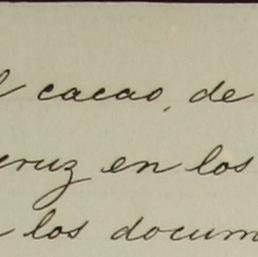 l cacao, de
cruz en los
los docum